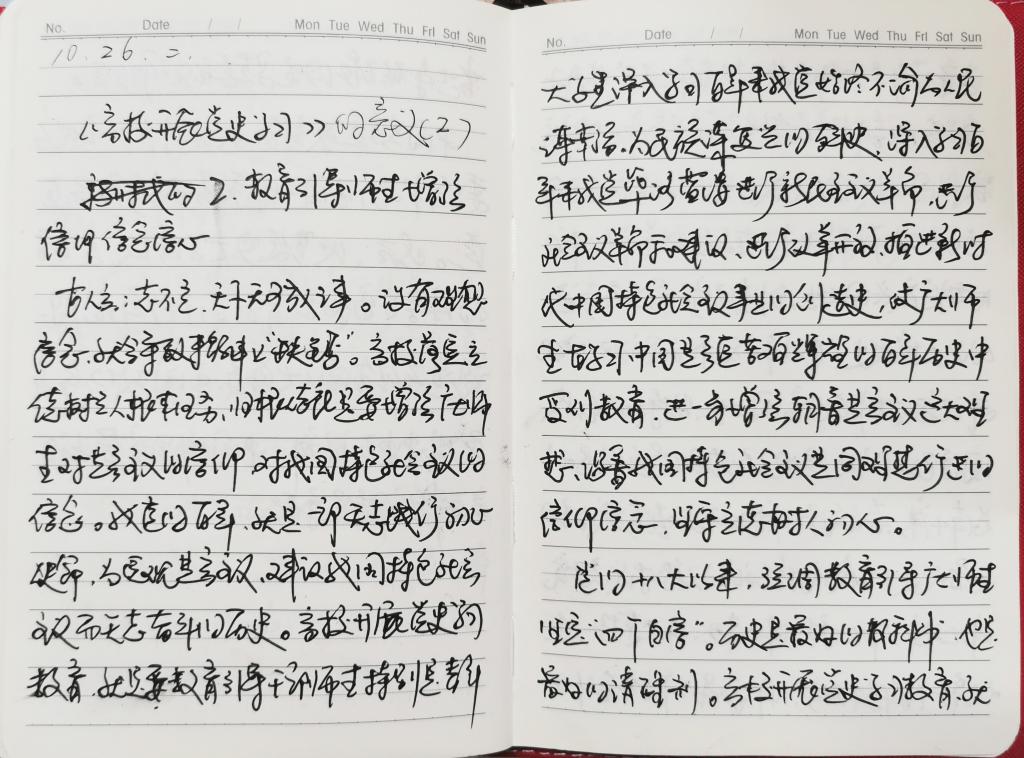 No. Date / / Mon Tue Wed Thu Fri Sat Sun
10.26.二.
《高校开展党史学习》的意义(2)
2.教育引导师生增强
信仰信念信心
古人言:志不立,天下无可成之事。没有理想
信念,就会导致精神上"缺钙"。高校落实立
德树人根本任务,归根结底就是要增强广大师
生对共产主义的信仰 对我国特色社会主义的
信念。我党的百年,就是一部矢志践行初心
使命,为实现共产主义,建设我国特色社会
主义而矢志奋斗的历史。高校开展党史学习
教育,就是要教育引导干部师生特别是青年
No. Date / / Mon Tue Wed Thu Fri Sat Sun
大学生深入学习百年来我党始终不渝为人民
谋幸福,为民族谋复兴的百年史,深入学习百
年来我党筚路蓝缕进行新民主主义革命,进行
社会主义革命和建设,进行改革开放,推进新时
代中国特色社会主义事业的创造史,使广大师
生在学习中国共产党百年辉煌的百年历史中
受到教育,进一步增强朝着共产主义远大理
想,沿着我国特色社会主义共同理想行进的
信仰信念,坚守立志树人的初心。
党的十八大以来,强调教育引导广大师生
坚定"四个自信"。历史是最好的教科书,也是
最好的清醒剂。高校开展党史学习教育,就